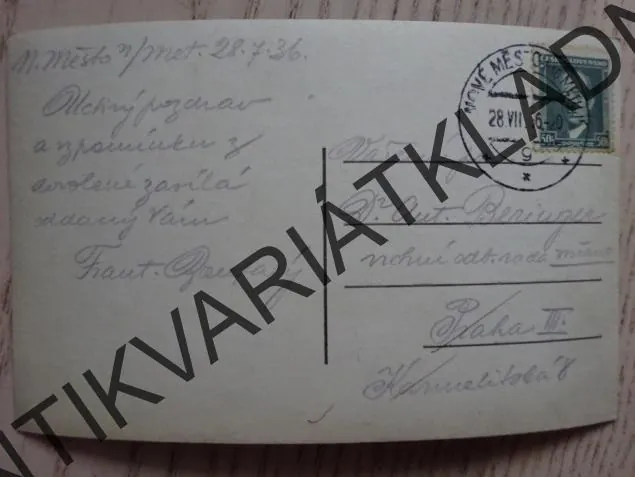 N. Město n/Met. 28.7.36.
Uctivý pozdrav
a vzpomínku z
dovolené zasílá
oddaný Vám
Frant.
NOVÉ MĚSTO
28.VII.36
g
50
Dr Ant. Beringer
vrchní odb. rada
Praha III.
Karmelitská 8
ANTIKVARIÁTKLADN